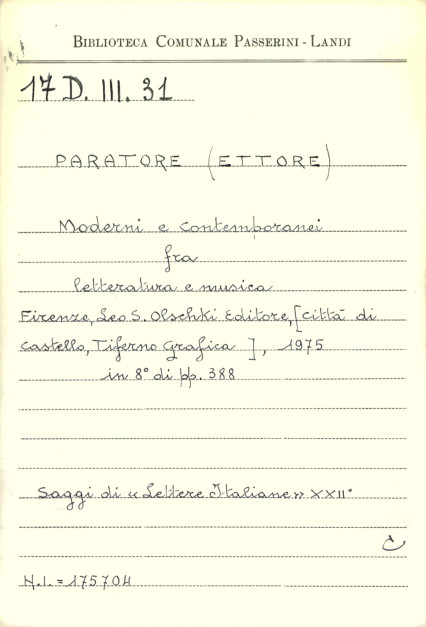 BIBLIOTECA COMUNALE PASSERINI - LANDI
17 D. III. 31
PARATORE (ETTORE)
Moderni e contemporanei
fra
letteratura e musica
Firenze, Leo S. Olschki Editore, [Città di
Castello, Tiferno Grafica ], 1975
in 8° di pp. 388
Saggi di « Lettere Italiane » XXII°
C
N.I. = 175704